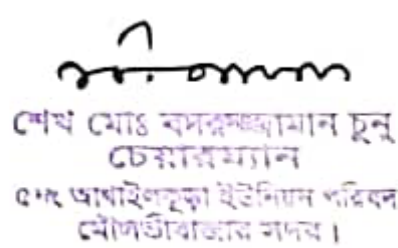 শেখ মোঃ বদরুজ্জামান চুনু
চেয়ারম্যান
৫নং আখাইলকুড়া ইউনিয়ন পরিষদ
মৌলভীবাজার সদর।